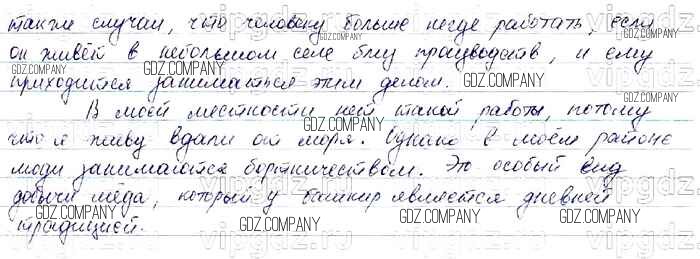 такие случаи, что человеку больше негде работать, если
он живёт в небольшом селе без производств, и ему
приходится заниматься этим делом.
В моей местности нет такой работы, потому
что я живу вдали от моря. Однако в моём районе
люди занимаются бортничеством. Это особый вид
добычи мёда, который у башкир является древней
традицией.
GDZ.COMPANY
vipgdz.ru